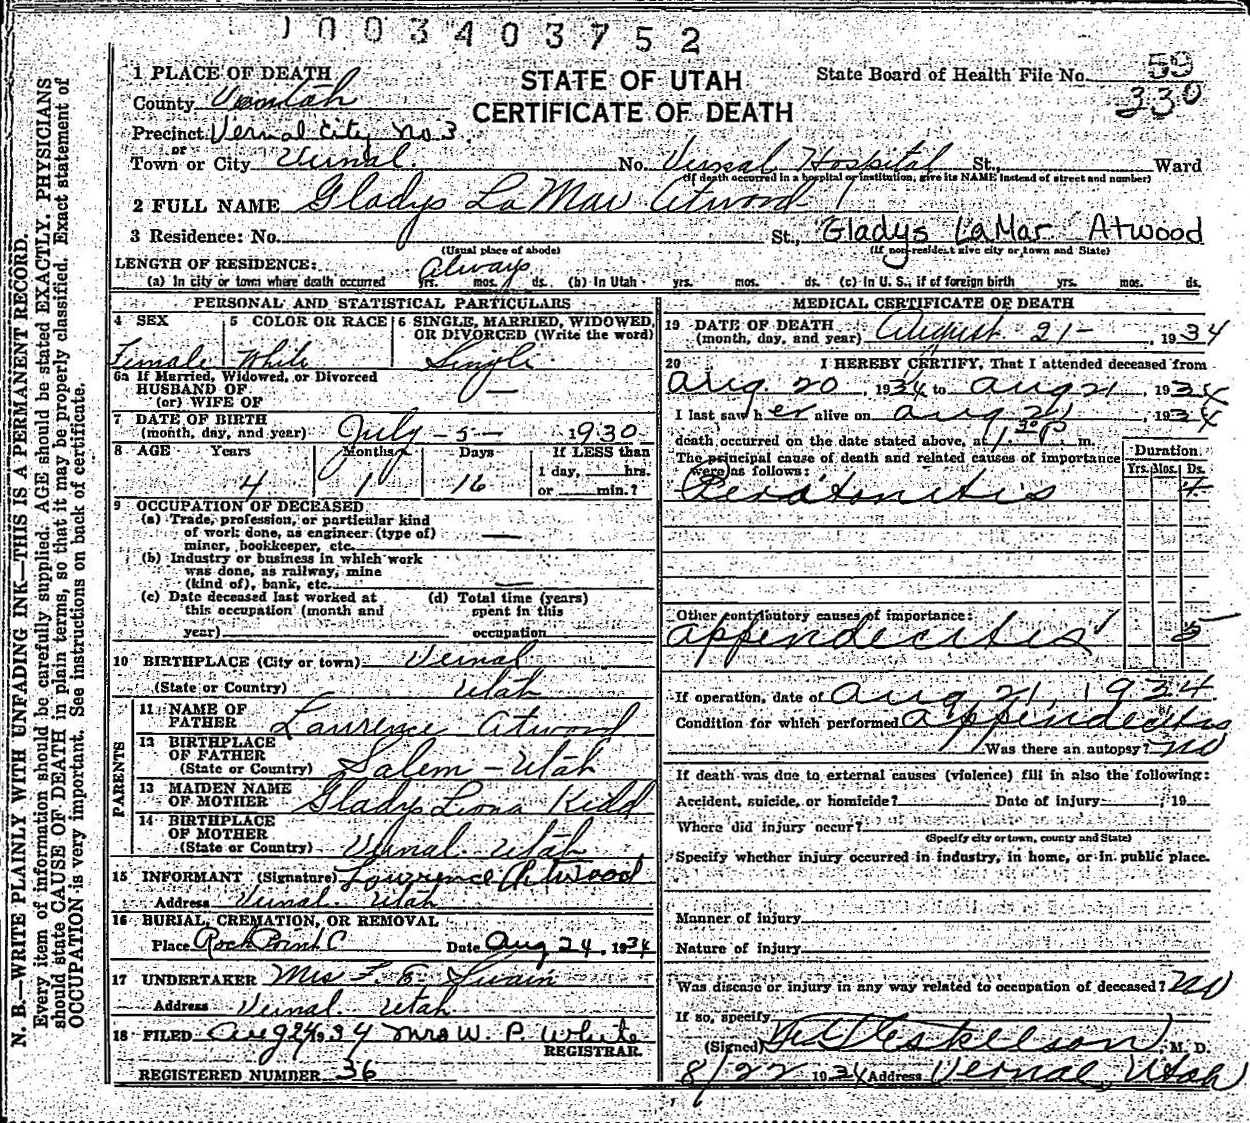 1003403752
1 PLACE OF DEATH
STATE OF UTAH
CERTIFICATE OF DEATH
State Board of Health File No. 59
330
County Uintah
Precinct Vernal City No 3
or
Town or City Vernal. No. Vernal Hospital St., Ward
(If death occurred in a hospital or institution, give its NAME instead of street and number)
2 FULL NAME Gladys LaMar Atwood
3 Residence: No. St., Gladys LaMar Atwood
(Usual place of abode) (If non-resident give city or town and State)
LENGTH OF RESIDENCE: Always
(a) In city or town where death occurred yrs. mos. ds. (b) In Utah - yrs. mos. ds. (c) In U. S., if of foreign birth yrs. mos. ds.
PERSONAL AND STATISTICAL PARTICULARS
4 SEX 5 COLOR OR RACE 6 SINGLE, MARRIED, WIDOWED, OR DIVORCED (Write the word)
Female White Single
6a If Married, Widowed, or Divorced
HUSBAND OF
(or) WIFE OF —
7 DATE OF BIRTH
(month, day, and year) July - 5 - 1930
8 AGE Years Months Days If LESS than
4 1 16 1 day, hrs.
or min.?
9 OCCUPATION OF DECEASED
(a) Trade, profession, or particular kind
of work done, as engineer (type of)
miner, bookkeeper, etc. —
(b) Industry or business in which work
was done, as railway, mine
(kind of), bank, etc. —
(c) Date deceased last worked at
this occupation (month and
year)
(d) Total time (years)
spent in this
occupation
10 BIRTHPLACE (City or town) Vernal
(State or Country) Utah
PARENTS
11 NAME OF
FATHER Lawrence Atwood
12 BIRTHPLACE
OF FATHER
(State or Country) Salem - Utah
13 MAIDEN NAME
OF MOTHER Gladys Liona Kidd
14 BIRTHPLACE
OF MOTHER
(State or Country) Vernal. Utah
15 INFORMANT (Signature) Lawrence Atwood
Address Vernal. Utah
16 BURIAL, CREMATION, OR REMOVAL
Place Rock Point C Date Aug 24, 1934
17 UNDERTAKER Mrs F. E. Swain
Address Vernal. Utah
18 FILED Aug 24 1934 Mrs W. P. White
REGISTRAR.
REGISTERED NUMBER 36
MEDICAL CERTIFICATE OF DEATH
19 DATE OF DEATH
(month, day, and year) August 21 - , 1934
20 I HEREBY CERTIFY, That I attended deceased from
Aug 20, 1934 to Aug 21, 1934
I last saw her alive on Aug 21, 1934
death occurred on the date stated above, at 1:30 P m.
The principal cause of death and related causes of importance
were as follows:
Duration
Yrs. Mos. Ds.
Peratonitis 4
Other contributory causes of importance:
Appendecitis 5
If operation, date of Aug 21, 1934
Condition for which performed Appendecitis
Was there an autopsy? No
If death was due to external causes (violence) fill in also the following:
Accident, suicide, or homicide? Date of injury , 19
Where did injury occur?
(Specify city or town, county and State)
Specify whether injury occurred in industry, in home, or in public place.
Manner of injury
Nature of injury
Was disease or injury in any way related to occupation of deceased? No
If so, specify
(Signed) Eskelson, M. D.
8/22 1934 Address Vernal, Utah
N. B.—WRITE PLAINLY WITH UNFADING INK—THIS IS A PERMANENT RECORD.
Every item of information should be carefully supplied. AGE should be stated EXACTLY. PHYSICIANS
should state CAUSE OF DEATH in plain terms, so that it may be properly classified. Exact statement of
OCCUPATION is very important. See instructions on back of certificate.